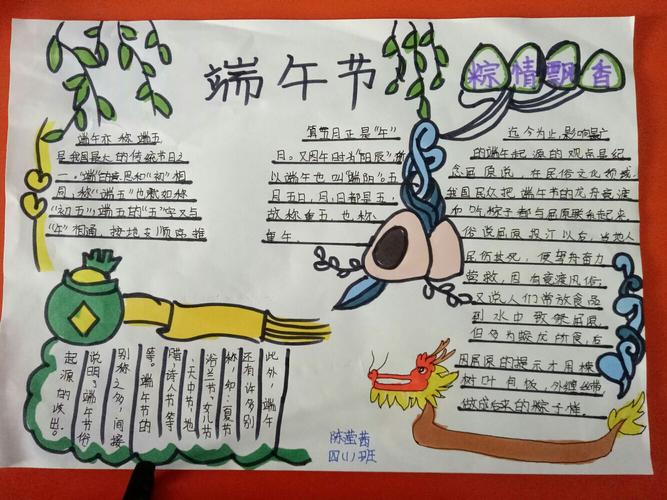 端午节
粽情飘香
端午亦称端五
是我国最大的传统节日之
一,"端"的意思和"初"相
同,称"端五"也就如称
"初五";端五的"五"字又与
"午"相通,按地支顺序推
算,五月正是"午"
月。又因午时为"阳辰",
以端午也叫"端阳"。五
月五日,月、日都是五
故称重五,也称
重午。
迄今为止,影响最广
的端午起源的观点是纪
念屈原说,在民俗文化领域,
我国民众把端午节的龙舟竞渡
和吃粽子都与屈原联系起来
俗说屈原投江以后,当地人
民伤其死,便驾舟奋力
营救,因有竞渡风俗;
又说人们常放食品
到水中致祭屈原,
但多为蛟龙所食,后
因屈原的提示才用楝
树叶包饭,外缠彩丝
做成后来的粽子样。
此外,端午
还有许多别
称,如:夏节
浴兰节、女儿节
、天中节、地
腊、诗人节等
等。端午节的
别称之多,间接
说明了端午节俗
起源的歧出。
陈莹茜
四(1)班